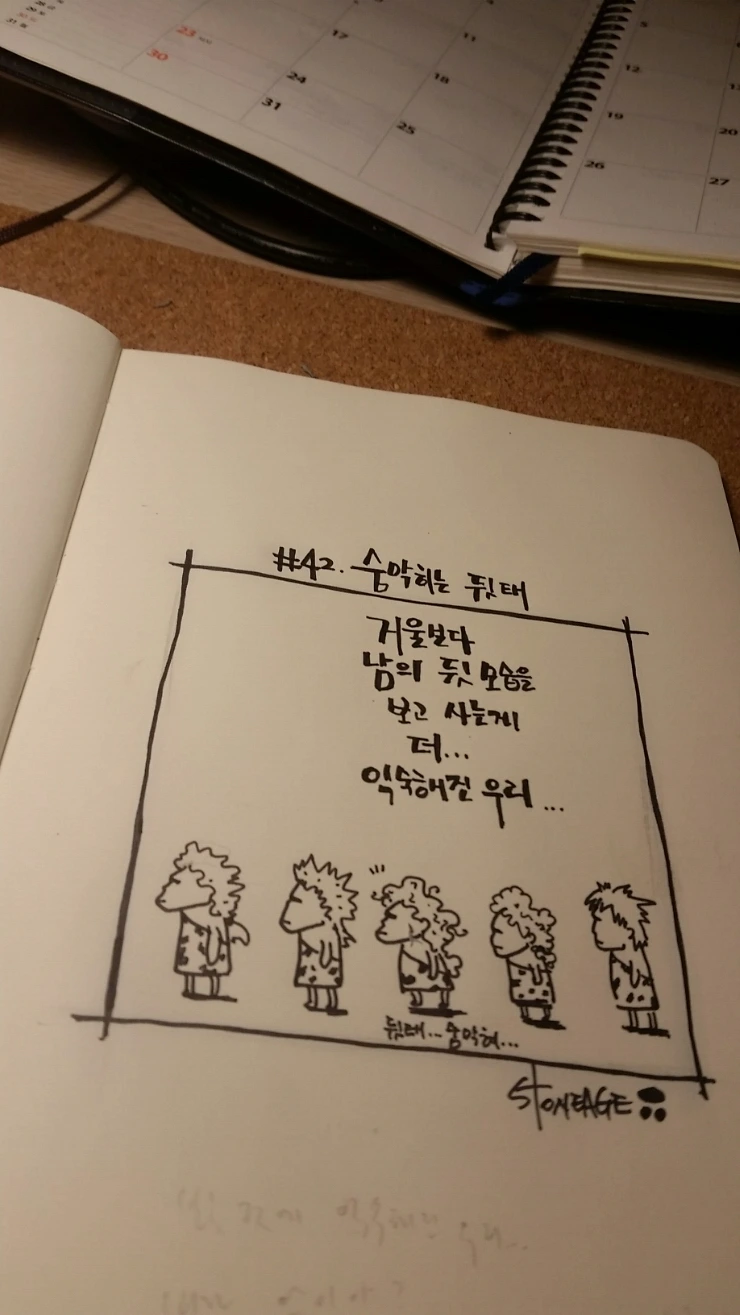 23
30
17
24
31
11
18
25
5
12
19
26
20
27
#42. 숨막히는 뒷태
거울보다
남의 뒷모습을
보고 사는게
더...
익숙해진 우리...
뒷태...숨막혀...
STONEAGE